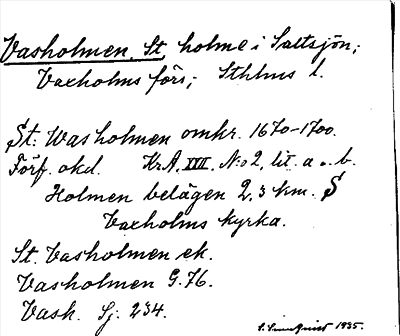 Vasholmen, St. holme i Saltsjön;
Vaxholms förs; Sthlms l.
St: Washolmen omkr. 1670-1700.
Förf. okd. KrA, XVII, No 2, lit. a o. b.
Holmen belägen 2,3 km. S
Vaxholms kyrka.
St. Vasholmen ek.
Vasholmen G. 76.
Vash. Sj. 234.
1935.